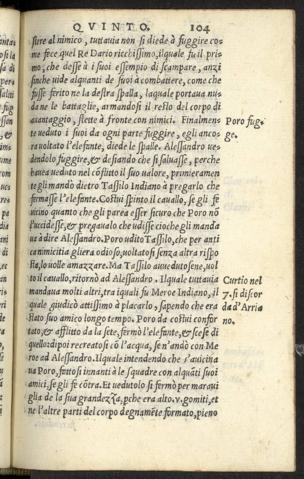 QVINTO. 104
stere al nimico, tuttauia non si diede à fuggire co=
me fece quel Re Dario ricchissimo, ilquale fu il pri=
mo, che desse à i suoi essempio di scampare, anzi
finche uide alquanti de suoi à combattere, come che
fusse ferito ne la destra spalla, laquale portaua nu=
da ne le battaglie, armandosi il resto del corpo di
auantaggio, stette à fronte con nimici. Finalmen=
te ueduto i suoi da ogni parte fuggire, egli anco=
ra uoltato l'elefante, diede le spalle. Alessandro ue=
dendolo fuggire, & desiando che si saluasse, perche
haueа ueduto nel cōflitto il suo ualore, primieramen
te gli mandò dietro Tassilo Indiano à pregarlo che
fermasse l'elefante. Costui spinto il cauallo, se gli fe
uicino quanto che gli parea esser sicuro che Poro nō
l'uccidesse, & pregaualo che udisse cioche gli manda
ua à dire Alessandro. Poro udito Tassilo, che per anti
ca nimicitia gliera odioso, uoltatosi senza altra rispo
sta, lo uolle amazzare. Ma Tassilo auuedutosene, uol
to il cauallo, ritornò ad Alessandro. Ilquale tuttauia
mandaua molti altri, tra iquali fu Meroe Indiano, il
quale giudicò attissimo à placarlo, sapendo che era
stato suo amico longo tempo. Poro da costui confor
tato, & afflitto da la sete, fermò l'elefante, & scese di
quello: dipoi recreatosi cō l'acqua, se n'andò con Me
roe ad Alessandro. Ilquale intendendo che s'auicina
ua Poro, fattosi innanti à le squadre con alquāti suoi
amici, se gli fè cōtra. Et uedutolo si fermò per maraui
glia de la sua grandezza, pche era alto. v. gomiti, et
ne l'altre parti del corpo degnamēte formato, pieno
Poro fug=
ge.
Curtio nel
7. si discor
da d'Arria
no.